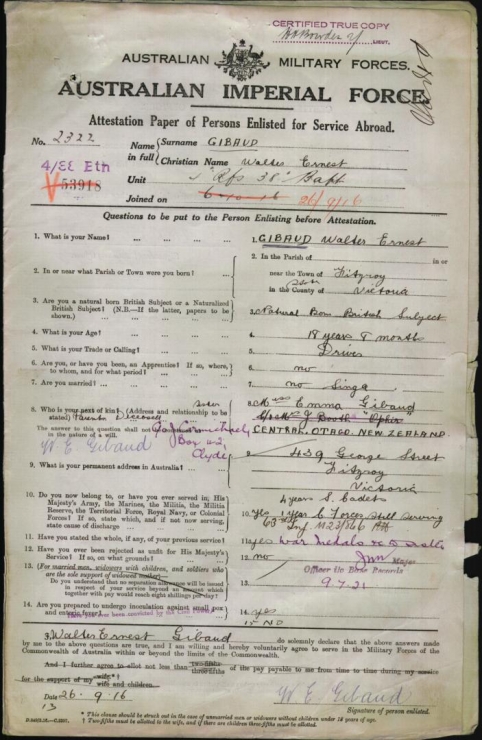 CERTIFIED TRUE COPY
LIEUT.
AUSTRALIAN MILITARY FORCES.
AUSTRALIAN IMPERIAL FORCE
Attestation Paper of Persons Enlisted for Service Abroad.
No. 2322
Name in full { Surname GIBAUD
Christian Name Walter Ernest
V53918
Unit Rfs 38" Bapt
Joined on 6-10-16 26/9/16
Questions to be put to the Person Enlisting before Attestation.
1. What is your Name? ... ... ... ... 1. GIBAUD Walter Ernest
2. In or near what Parish or Town were you born? ... 2. In the Parish of in or
near the Town of Fitzroy
in the County of Victoria
3. Are you a natural born British Subject or a Naturalized British Subject? (N.B.—If the latter, papers to be shown.) 3. Natural Born British Subject
4. What is your Age? ... ... ... ... 4. 18 years 8 months
5. What is your Trade or Calling? ... ... 5. Driver
6. Are you, or have you been, an Apprentice? If so, where, to whom, and for what period? 6. no
7. Are you married? ... ... ... ... 7. no Single
8. Who is your next of kin? (Address and relationship to be stated) Parents Deceased sister
The answer to this question shall not
in the nature of a will.
8. Emma Gibaud
Ophir
CENTRAL OTAGO, NEW ZEALAND.
Clyde
W E Gibaud
9. What is your permanent address in Australia? ... 9. 439 George Street
Fitzroy
Victoria
4 years S. Cadets
10. Do you now belong to, or have you ever served in, His Majesty's Army, the Marines, the Militia, the Militia Reserve, the Territorial Force, Royal Navy, or Colonial Forces? If so, state which, and if not now serving, state cause of discharge 10. Yes 1 year C. Forces still serving
63rd Inf
11. Have you stated the whole, if any, of your previous service? 11. yes
12. Have you ever been rejected as unfit for His Majesty's Service? If so, on what grounds? 12. no
Major
Officer i/c Base Records
9.7.21
13. (For married men, widowers with children, and soldiers who are the sole support of widowed mother)—
Do you understand that no separation allowance will be issued in respect of your service beyond an amount which together with pay would reach eight shillings per day? 13.
14. Are you prepared to undergo inoculation against small pox and enteric fever? 14. Yes
15 NO
I, Walter Ernest Gibaud do solemnly declare that the above answers made
by me to the above questions are true, and I am willing and hereby voluntarily agree to serve in the Military Forces of the
Commonwealth of Australia within or beyond the limits of the Commonwealth.
And I further agree to allot not less than two-fifths three-fifths of the pay payable to me from time to time during my service
for the support of my wife* wife and children.
Date 26.9.16
W. E. Gibaud
Signature of person enlisted.
* This clause should be struck out in the case of unmarried men or widowers without children under 18 years of age.
† Two-fifths must be allotted to the wife, and if there are children three-fifths must be allotted.